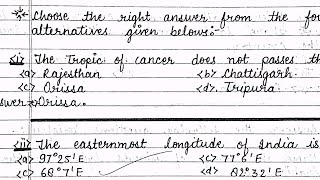 Choose the right answer from the fo
alternatives given below:-
<i> The Tropic of cancer does not passes th
<a> Rajesthan <b> Chattisgarh
<c> Orissa <d> Tripura
swer→Orissa.
<ii> The easternmost longitude of India is
<a> 97°25'E <c> 77°6'E
<c> 68°7'E <d> 82°32'E